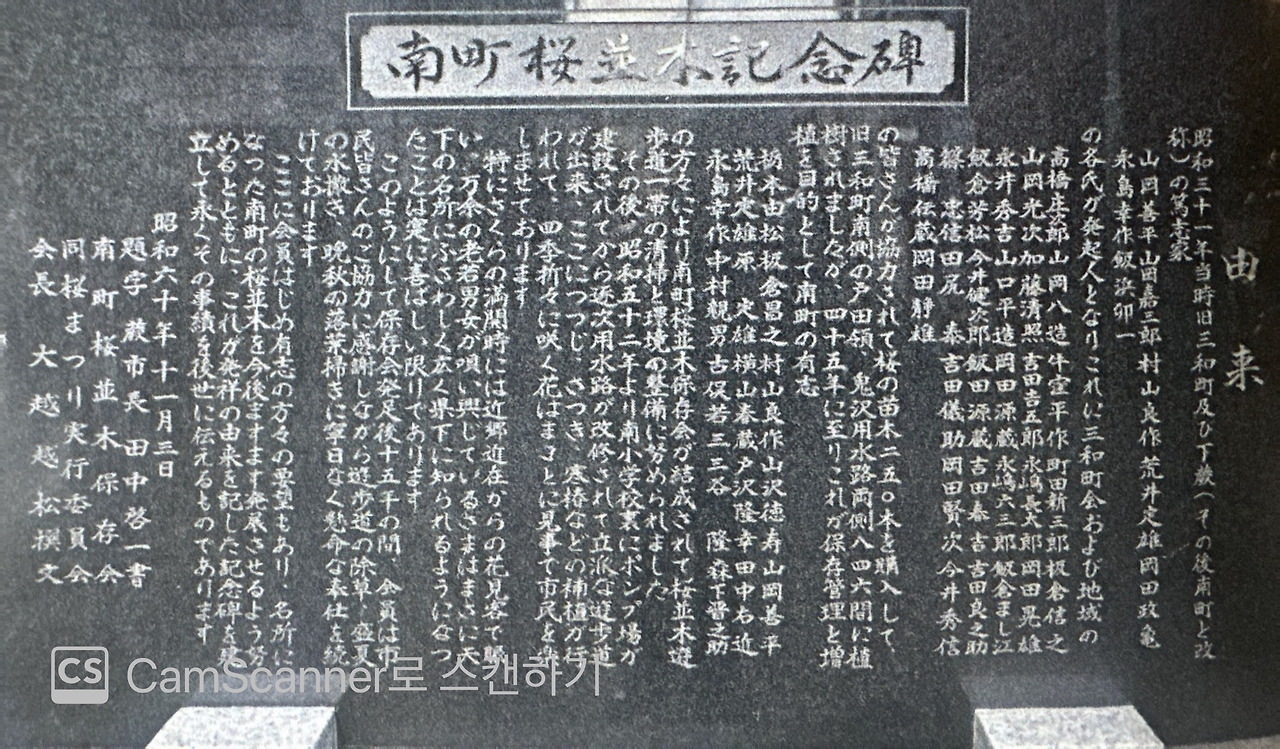 南町桜並木記念碑
由来
昭和三十一年当時旧三和町及び下蕨(その後南町と改
称)の篤志家
山岡善平 山岡嘉三郎 村山良作 荒井定雄 岡田政亀
永島幸作 飯浜卯一
の各氏が発起人となりこれに三和町会および地域の
高橋庄次郎 山岡八造 牛窪平作 町田新三郎 板倉信之
山岡光次 加藤清照 吉田吉五郎 永嶋長太郎 岡田晃雄
永井秀吉 山口平造 岡田源蔵 永嶋六三郎 飯倉まし江
飯倉芳松 今井健次郎 飯田源蔵 吉田春吉 吉田良之助
忠信 田尻 泰吉 田儀助 岡田賢次 今井秀信
高橋伝蔵 岡田静雄
の皆さんが協力されて桜の苗木二五〇本を購入して、
旧三和町南側の戸田領、鬼沢用水路両側八四六間に植
樹されましたが、四十五年に至りこれが保存管理と増
植を目的として南町の有志
栃本由松 板倉昌之 村山良作 山沢徳寿 山岡善平
荒井定雄 原 実雄 横山春蔵 戸沢隆幸 田中右近
永島幸作 中村親男 古俣若三 三谷 隆 森下晋之助
の方々により南町桜並木保存会が結成されて桜並木遊
歩道一帯の清掃と環境の整備に努められました
その後、昭和五十二年より南小学校裏にポンプ場が
建設されてから逐次用水路が改修されて立派な遊歩道
が出来、ここにつつじ、さつき、寒椿などの補植が行
われて、四季折々に咲く花はまことに見事で市民を楽
しませております
特にさくらの満開時には近郷近在からの花見客で賑
い、万余の老若男女が唄い興じているさまはまさに天
下の名所にふさわしく広く県下に知られるようになっ
たことは寔に喜ばしい限りであります
このようにして保存会発足後十五年の間、会員は市
民皆さんのご協力に感謝しながら遊歩道の除草・盛夏
の水撒き、晩秋の落葉掃きに寧日なく懸命な奉仕を続
けております
ここに会員はじめ有志の方々の要望もあり、名所に
なった南町の桜並木を今後ますます発展させるよう努
めるとともに、これが発祥の由来を記した記念碑を建
立して永くその事績を後世に伝えるものであります
昭和六十年十一月三日
題字 蕨市長 田中啓一書
南町桜並木保存会
同桜まつり実行委員会
会長 大越越松撰文
CS CamScanner로 스캔하기